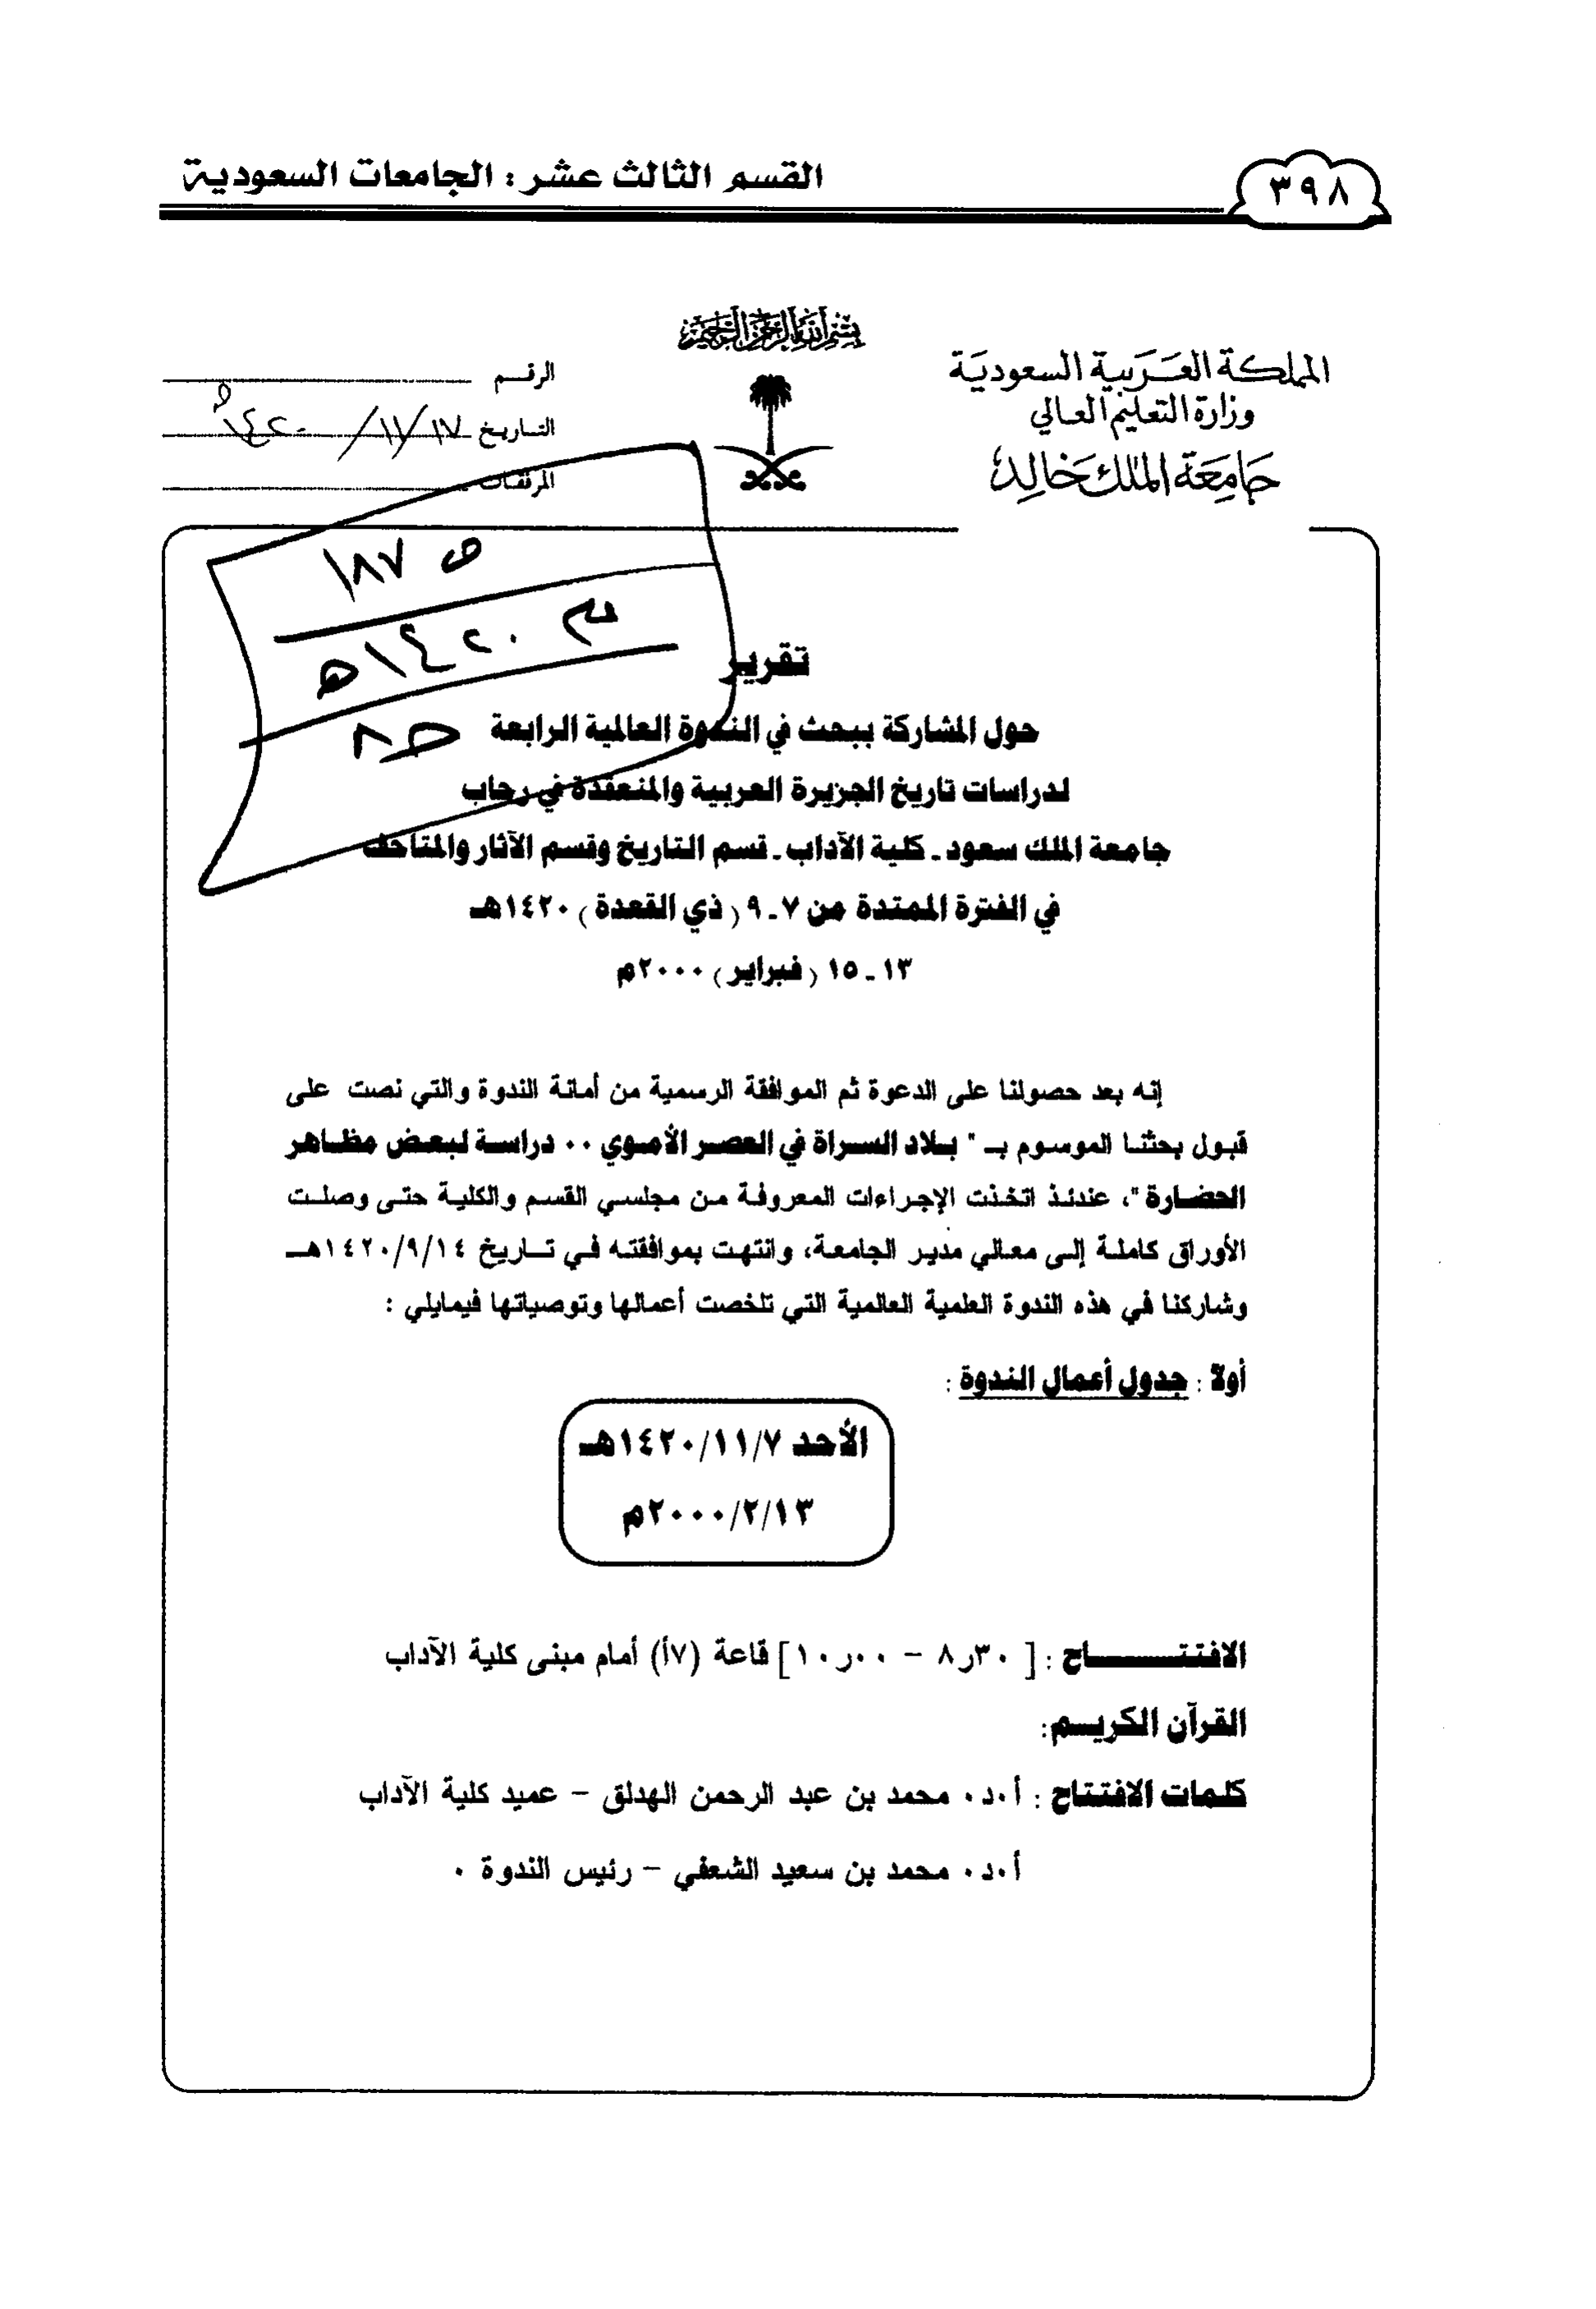 القسم الثالث عشر : الجامعات السعودية
٣٩٨
بسم الله الرحمن الرحيم
المملكة العربية السعودية
وزارة التعليم العالي
جامعة الملك خالد
الرقم
التاريخ ١٧/١١/١٤٢٠هـ
المرفقات
ص ١٨٧
م ١٤٢٠هـ
ح٨
تقرير
حول المشاركة ببحث في الندوة العالمية الرابعة
لدراسات تاريخ الجزيرة العربية والمنعقدة في رحاب
جامعة الملك سعود ـ كلية الآداب ـ قسم التاريخ وقسم الآثار والمتاحف
في الفترة الممتدة من ٧ـ ٩ ( ذي القعدة ) ١٤٢٠هـ
١٣ ـ ١٥ ( فبراير ) ٢٠٠٠م
إنه بعد حصولنا على الدعوة ثم الموافقة الرسمية من أمانة الندوة والتي نصت على
قبول بحثنا الموسوم بـ " بلاد السراة في العصر الأموي ٠٠ دراسة لبعض مظاهر
الحضارة "، عندئذ اتخذت الإجراءات المعروفة من مجلسي القسم والكلية حتى وصلت
الأوراق كاملة إلى معالي مدير الجامعة، وانتهت بموافقته في تاريخ ١٤٢٠/٩/١٤هـ
وشاركنا في هذه الندوة العلمية العالمية التي تلخصت أعمالها وتوصياتها فيمايلي :
أولاً : جدول أعمال الندوة :
الأحد ١٤٢٠/١١/٧هـ
٢٠٠٠/٢/١٣م
الافتتـــــاح : [ ٣٠ر٨ – ٠٠ر١٠] قاعة (٧أ) أمام مبنى كلية الآداب
القرآن الكريم:
كلمات الافتتاح : أ٠د٠ محمد بن عبد الرحمن الهدلق – عميد كلية الآداب
أ٠د٠ محمد بن سعيد الشعفي – رئيس الندوة ٠